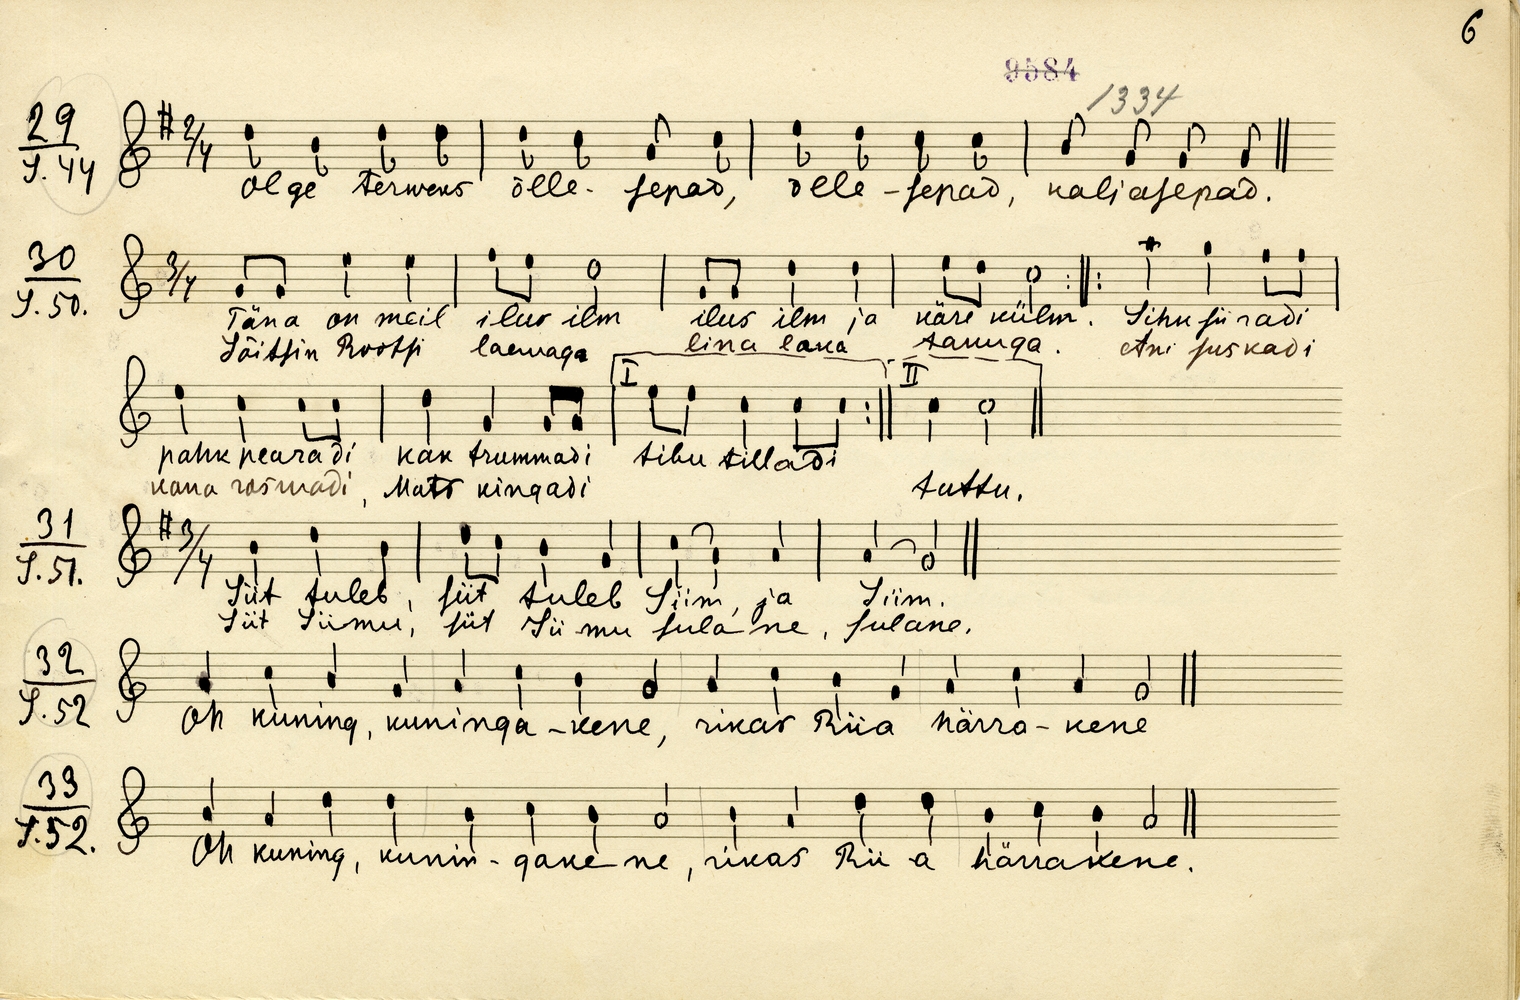 6
9584
1334
29
S. 44
2/4
Olge terweks õlle- sepad, õlle - sepad, kaljasepad.
30
S. 50.
3/4
Täna on meil ilus ilm ilus ilm ja käre külm. Sihu sii radi
Sõitsin Rootsi laewaga lina laka tanuga. Ani suskadi
I II
pahk pearadi kak trummadi tihu tilladi
kana rosmadi, Mats kingadi tuttu.
31
S. 51.
3/4
Siit tuleb, siit tuleb Siim, ja Siim.
Siit Siimu, siit Sii mu sula ne, sulane.
32
S. 52
Oh kuning, kuninga - kene, rikas Riia härra - kene
33
S. 52.
Oh kuning, kunin - gake ne, rikas Rii a härrakene.